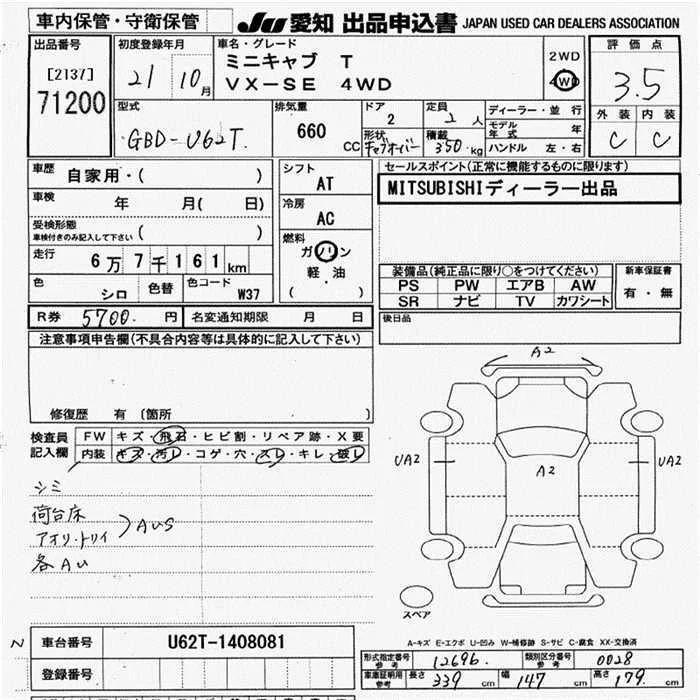 車内保管・守衛保管 JU 愛知 出品申込書 JAPAN USED CAR DEALERS ASSOCIATION
出品番号 [2137] 71200
初度登録年月 21 10月
車名・グレード ミニキャブ T
VX-SE 4WD
2WD
4WD
評価点 3.5
外装 内装
C C
型式 GBD-U62T.
排気量 660 CC
ドア 2
定員 2人
形状 キャブオーバー
積載 350kg
ディーラー・並行
モデル年式 年
ハンドル 左・右
車歴 自家用・( )
車検 年 月( 日)
受検形態 ( )
車検付きのみ記入して下さい
走行 6万7千161km
色 シロ 色替 色コード W37
シフト AT
冷房 AC
燃料
ガソリン
軽・油
( )
セールスポイント(正常に機能するものに限ります)
MITSUBISHIディーラー出品
装備品(純正品に限り○をつけてください)
PS PW エアB AW
SR ナビ TV カワシート
新車保証書
有・無
後日品
R券 5700.円 名変通知期限 月 日
注意事項申告欄(不具合内容等は具体的に記入して下さい)
修復歴 有 〔箇所 〕
検査員記入欄
FW キズ・飛石・ヒビ割・リペア跡・X要
内装 キズ・汚レ・コゲ・穴・スレ・キレ・破レ
シミ
荷台床
アオリ・トリイ
〉AUS
各AU
A2
UA2 A2 UA2
スペア
A-キズ E-エクボ U-凹み W-補修跡 S-サビ C-腐食 XX-交換済
N
車台番号 U62T-1408081
登録番号
形式指定番号 参考 12696. 類別区分番号 参考 0028
車庫証明用 参考 長さ 339 cm 幅 147 cm 高さ 179. cm